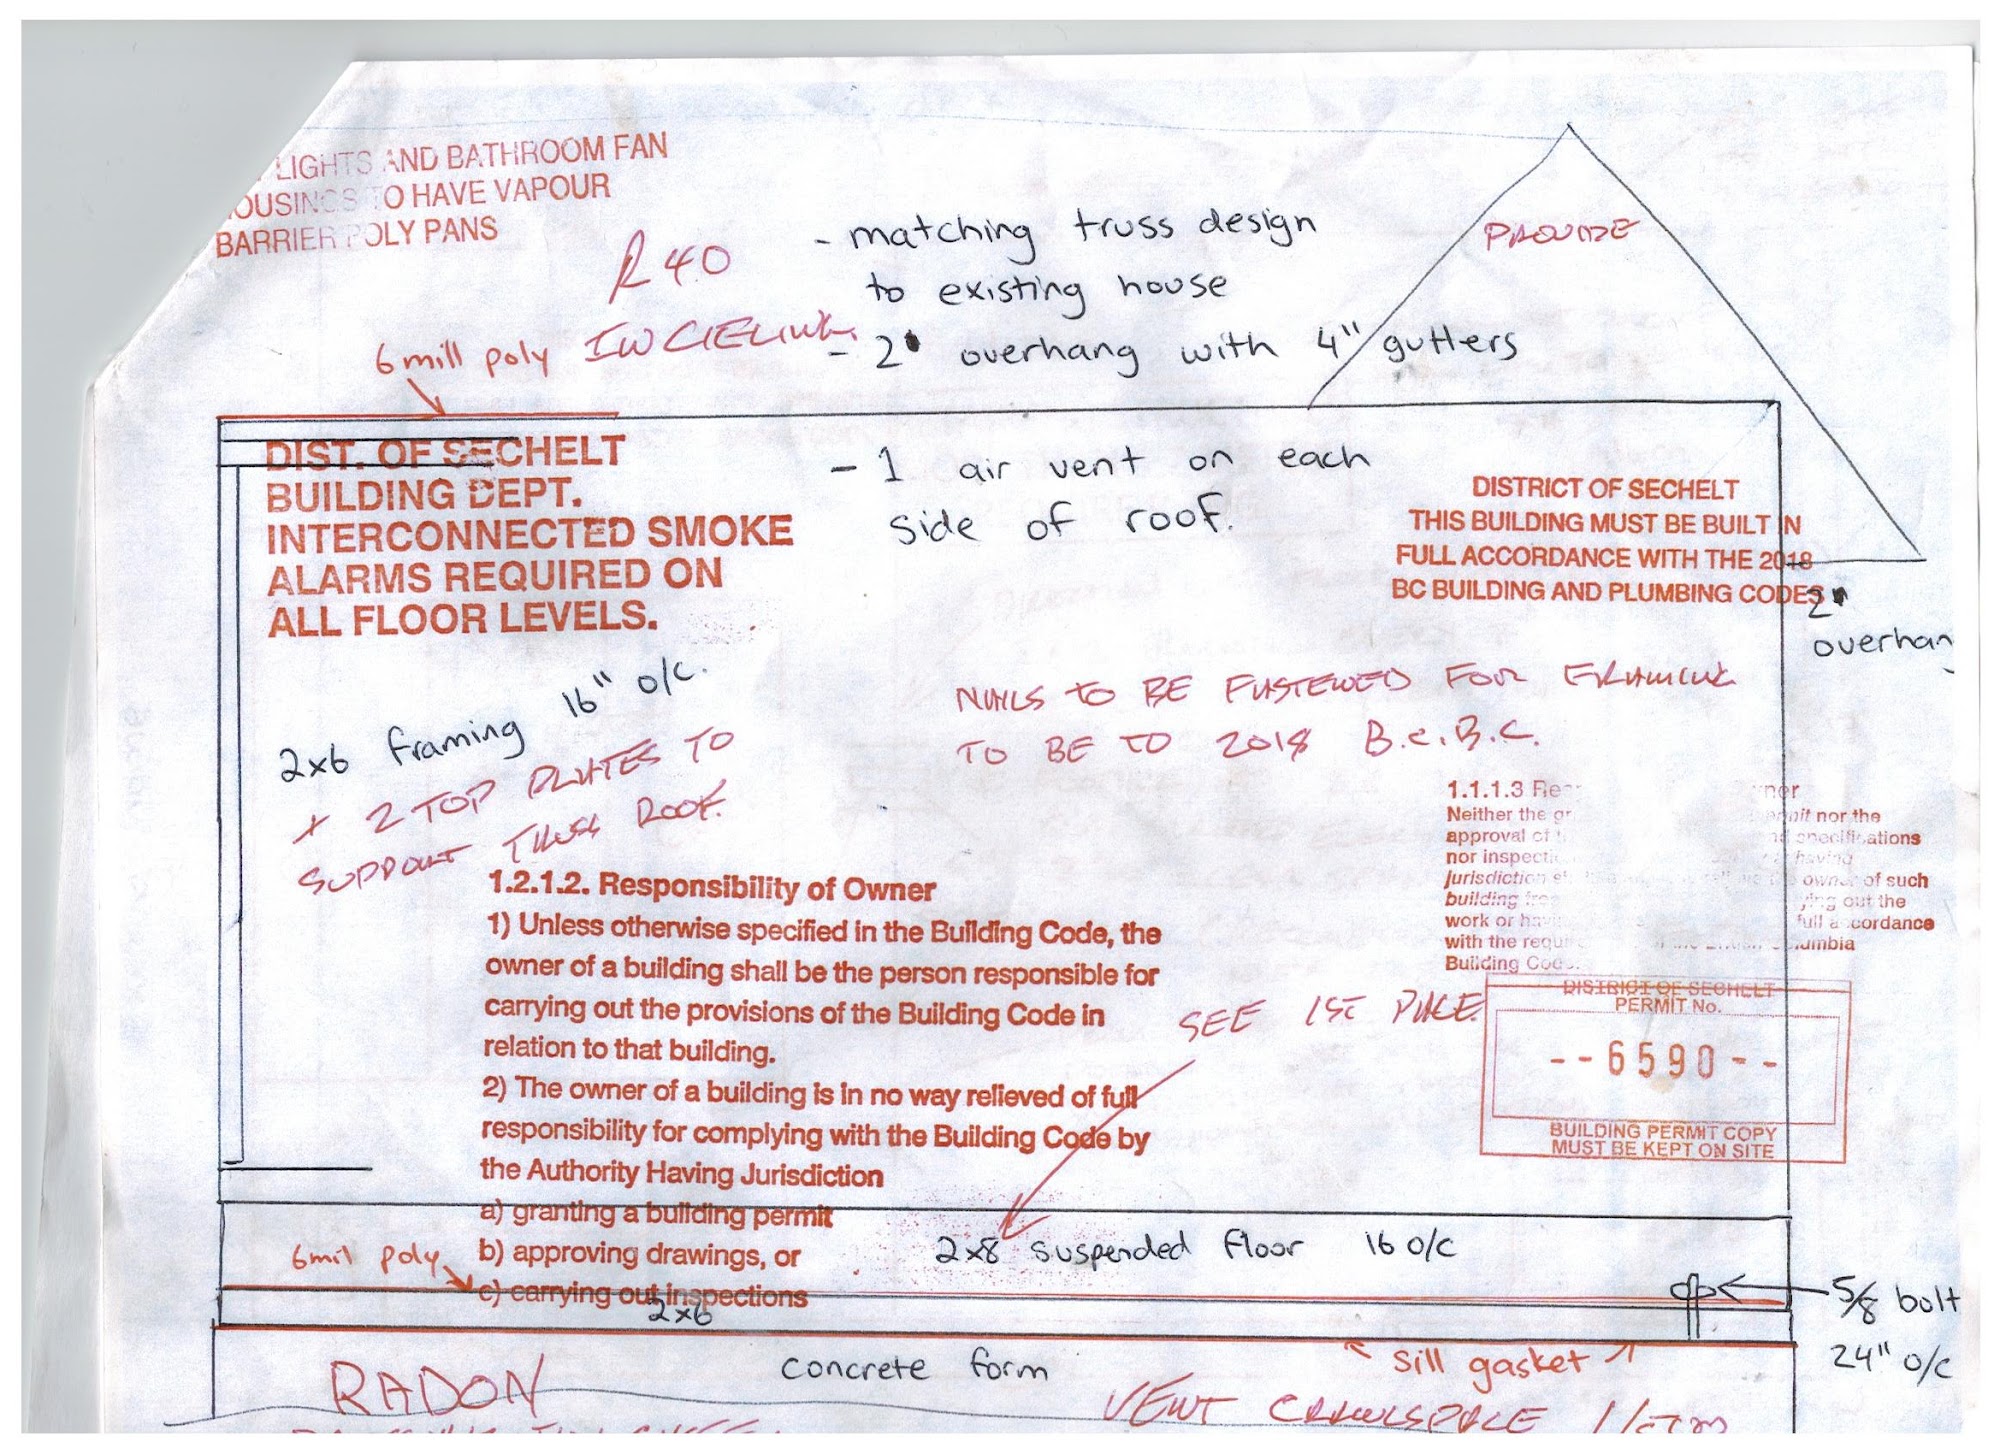 LIGHTS AND BATHROOM FAN
OUSINGS TO HAVE VAPOUR
BARRIER POLY PANS
R40
IN CIELING
6 mill poly
- matching truss design
to existing house
- 2' overhang with 4" gutters
PROVIDE
- 1 air vent on each
side of roof.
DIST. OF SECHELT
BUILDING DEPT.
INTERCONNECTED SMOKE
ALARMS REQUIRED ON
ALL FLOOR LEVELS.
DISTRICT OF SECHELT
THIS BUILDING MUST BE BUILT IN
FULL ACCORDANCE WITH THE 2018
BC BUILDING AND PLUMBING CODES
2'
overhan
2x6 framing 16" o/c.
+ 2 TOP PLATES TO
SUPPORT TRUSS ROOF.
NAILS TO BE FASTENED FOR FRAMING
TO BE TO 2018 B.C.B.C.
1.1.1.3
Neither the nor the
approval of specifications
nor having
jurisdiction owner of such
building out the
work or full accordance
with the
Building Code.
1.2.1.2. Responsibility of Owner
1) Unless otherwise specified in the Building Code, the
owner of a building shall be the person responsible for
carrying out the provisions of the Building Code in
relation to that building.
2) The owner of a building is in no way relieved of full
responsibility for complying with the Building Code by
the Authority Having Jurisdiction
a) granting a building permit
b) approving drawings, or
c) carrying out inspections
SEE 1ST PAGE
DISTRICT OF SECHELT
PERMIT No.
--6590--
BUILDING PERMIT COPY
MUST BE KEPT ON SITE
2x8 suspended floor 16 o/c
6mil poly
2x6
5/8 bolt
24" o/c
sill gasket
concrete form
RADON
VENT CRAWLSPACE